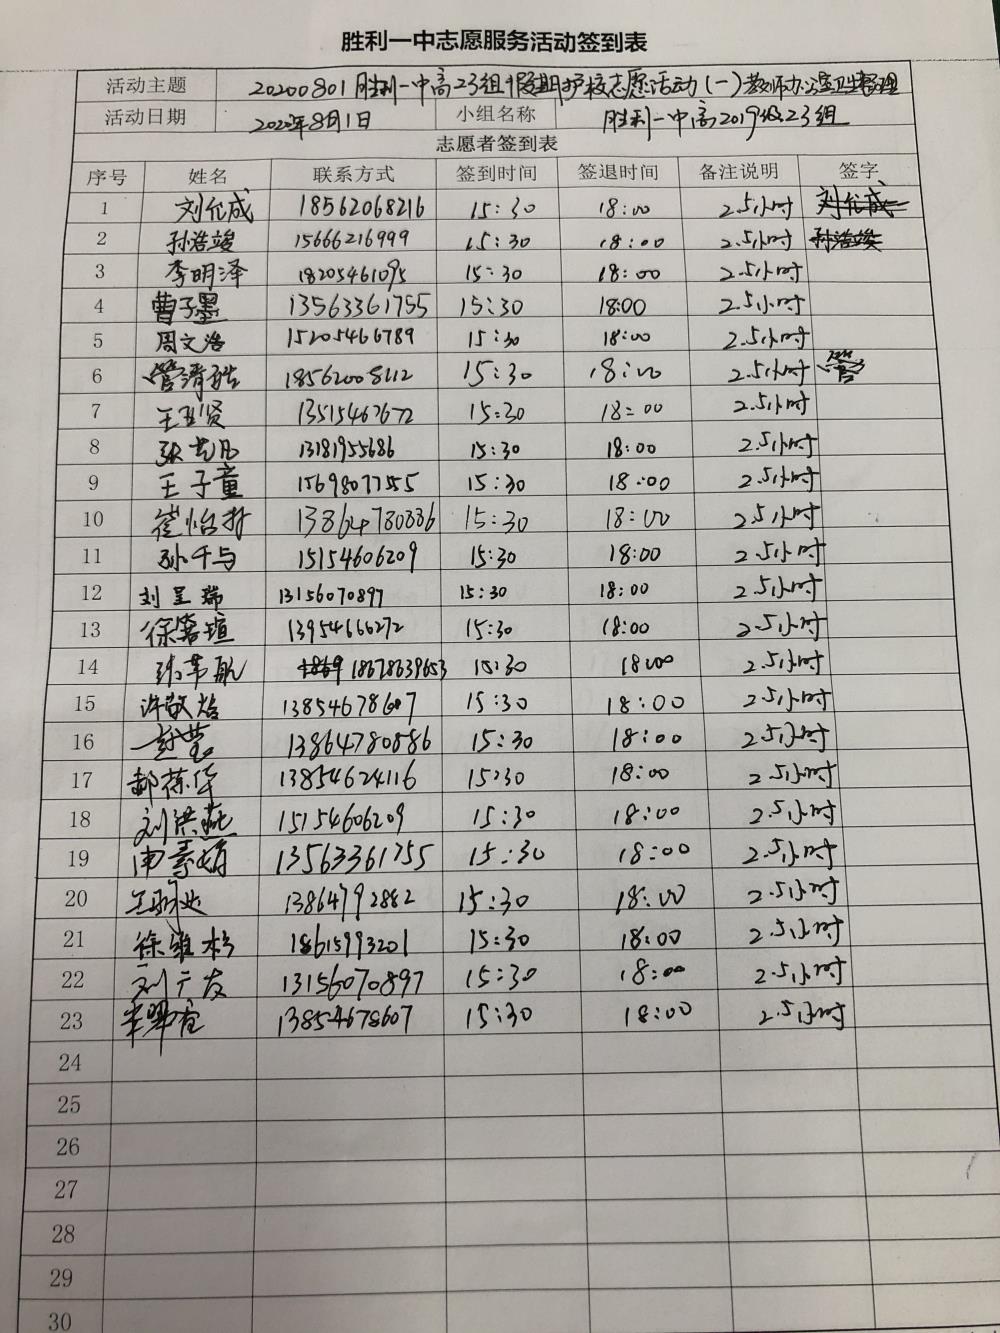 胜利一中志愿服务活动签到表
活动主题 20200801胜利一中高23组假期护校志愿活动(一)教师办公室卫生整理
活动日期 2020年8月1日 小组名称 胜利一中高2019级23组
志愿者签到表
序号 姓名 联系方式 签到时间 签退时间 备注说明 签字
1 刘允成 18562068216 15:30 18:00 2.5小时 刘允成
2 孙浩竣 15666216999 15:30 18:00 2.5小时 孙浩竣
3 李明泽 18205461095 15:30 18:00 2.5小时
4 曹子墨 13563361755 15:30 18:00 2.5小时
5 周文浩 15205466789 15:30 18:00 2.5小时
6 管清皓 18562008112 15:30 18:00 2.5小时 管
7 13515467672 15:30 18:00 2.5小时
8 13181955686 15:30 18:00 2.5小时
9 王子童 15698077555 15:30 18:00 2.5小时
10 13864780886 15:30 18:00 2.5小时
11 孙千与 15154606209 15:30 18:00 2.5小时
12 刘呈瑞 13156070897 15:30 18:00 2.5小时
13 13954666272 15:30 18:00 2.5小时
14 18678639653 15:30 18:00 2.5小时
15 许敬焓 13854678607 15:30 18:00 2.5小时
16 赵莹 13864780886 15:30 18:00 2.5小时
17 13854624116 15:30 18:00 2.5小时
18 刘洪燕 15154606209 15:30 18:00 2.5小时
19 南素娟 13563361755 15:30 18:00 2.5小时
20 13864792882 15:30 18:00 2.5小时
21 徐维杉 18615993201 15:30 18:00 2.5小时
22 刘广友 13156070897 15:30 18:00 2.5小时
23 13854678607 15:30 18:00 2.5小时
24
25
26
27
28
29
30